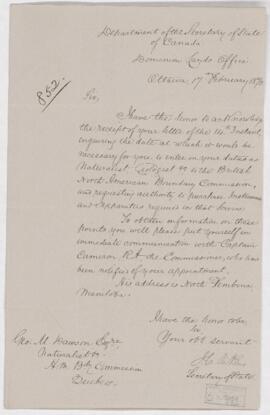 Department of the Secretary of State
of Canada
Dominion Lands Office
Ottawa 17 February 187
852.
Sir,
I have the honor to acknowledge
the receipt of your letter of the 14th Instant
enquiring the date at which it would be
necessary for you to enter in your duties as
Naturalist & Geologist to the British
North American Boundary Commission,
and requesting authority to purchase Instruments
and apparatus required in that Service.
To obtain information on these
points you will please put yourself in
immediate communication with Captain
Cameron R.A. the Commissioner, who has
been notified of your appointment.
His address is North Pembina
Manitoba.
I have the honor to be
Sir
Your obt servant
Secretary of State
Geo. M. Dawson Esqre
Naturalist &c
H.M. Bdy Commission